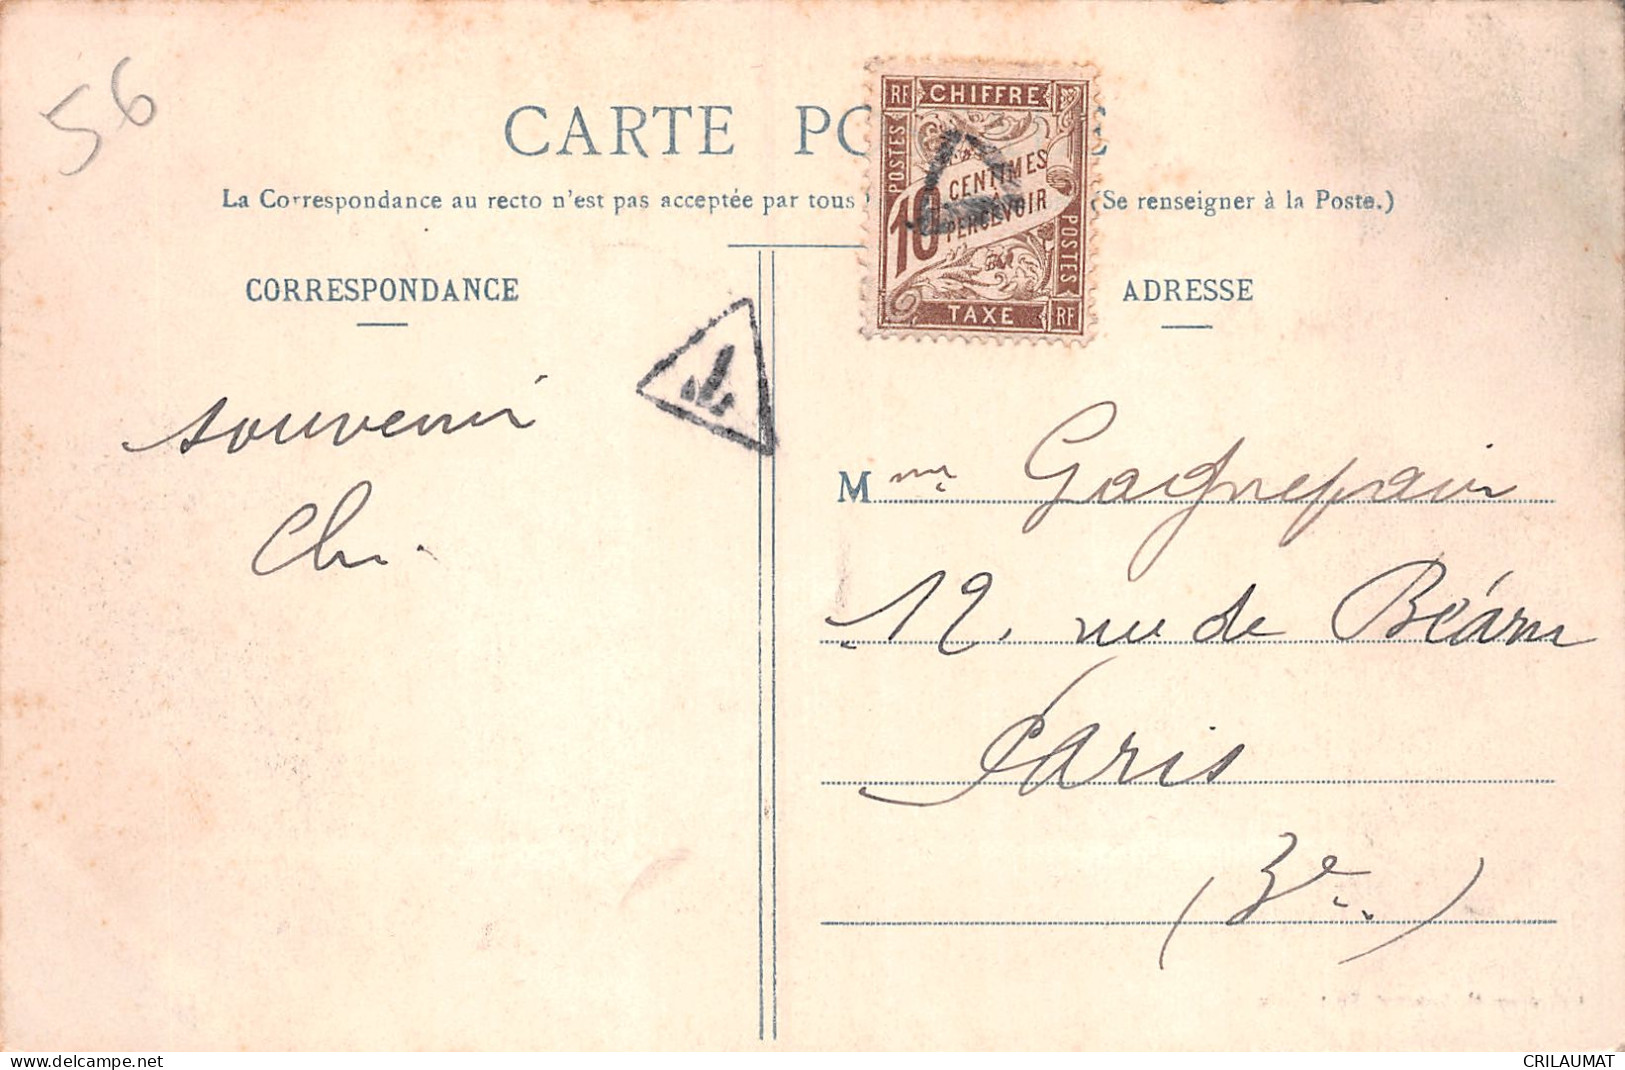 56
CARTE PO
La Correspondance au recto n'est pas acceptée par tous (Se renseigner à la Poste.)
RF CHIFFRE
POSTES
10 CENTIMES
À
PERCEVOIR
POSTES
TAXE RF
CORRESPONDANCE
ADRESSE
T
souvenir
Mme Gagnepain
12. rue de Béarn
Paris
(3e)
delcampe.net
CRILAUMAT